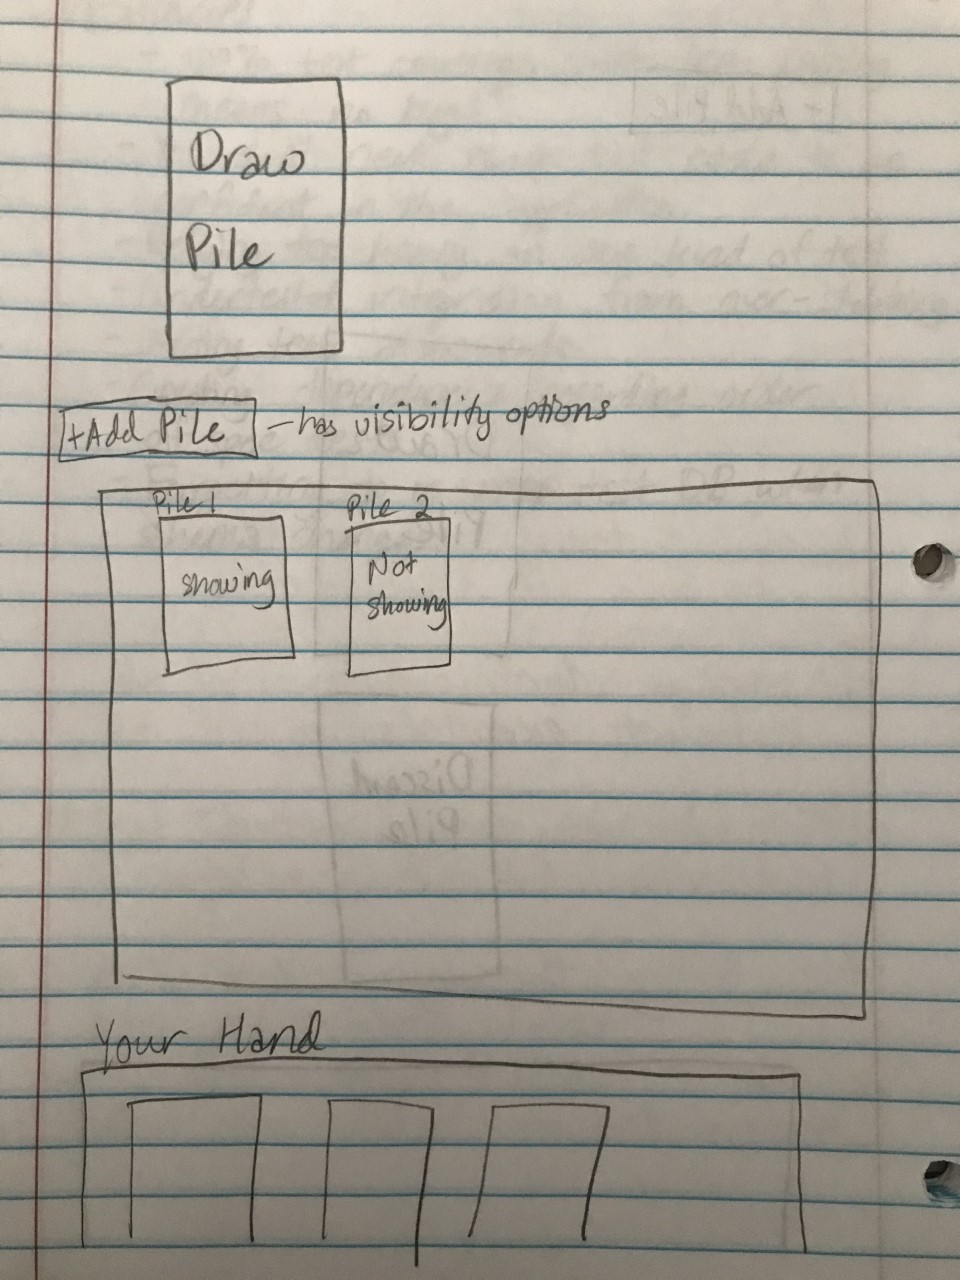 Draw
Pile
+Add Pile - has visibility options
Pile 1
Pile 2
showing
Not
showing
Your Hand